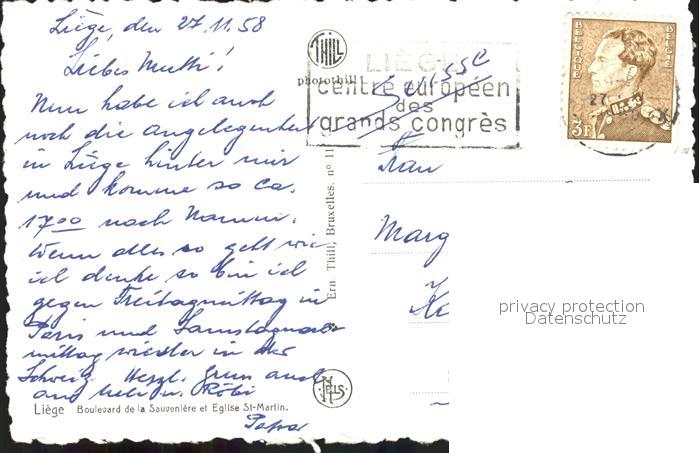 Liège, den 27.11.58
Liebes Mutti!
Nun habe ich auch
noch die Angelegenheit
in Liège hinter mir
und komme so ca.
17.00 nach Namur.
Wenn alles so geht wie
ich denke so bin ich
gegen Freitagmittag in
Paris und Samstagnach
mittag wieder in der
Schweiz. Herzl. Gruss auch
an Heli u. Röbi
Liège Boulevard de la Sauvenière et Eglise St-Martin.
THILL
photothill
Ern. Thill, Bruxelles. n° 11
NELS
LIÈGE
centre européen
des
grands congrès
Suisse
BELGIQUE
BELGIE
3F
27
Frau
Marg
privacy protection
Datenschutz